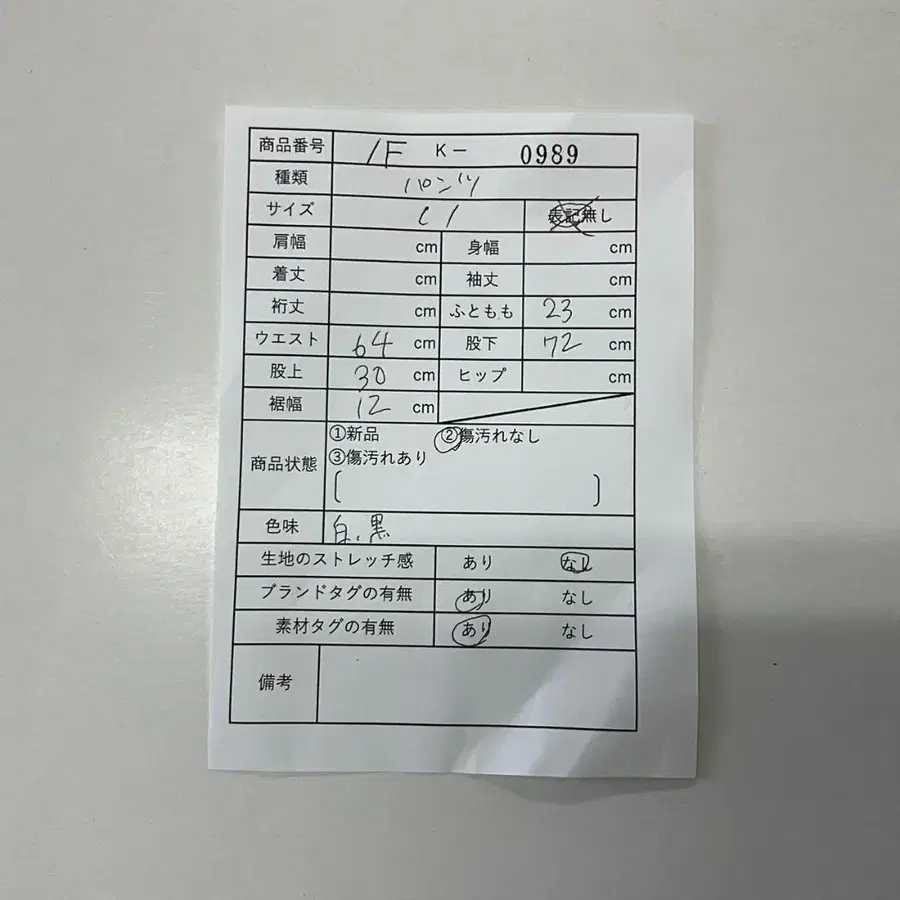 商品番号 1F K- 0989
種類 パンツ
サイズ 表記無し
肩幅 cm 身幅 cm
着丈 cm 袖丈 cm
裄丈 cm ふともも 23 cm
ウエスト 64 cm 股下 72 cm
股上 30 cm ヒップ cm
裾幅 12 cm
商品状態 ①新品 ②傷汚れなし
③傷汚れあり
〔 〕
色味 白、黒
生地のストレッチ感 あり なし
ブランドタグの有無 あり なし
素材タグの有無 あり なし
備考